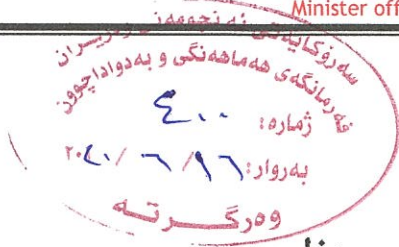 Minister off
سەرۆکایەتی ئەنجومەنی وەزیران
فەرمانگەی هەماهەنگی و بەدواداچوون
ژمارە: ٤٠٠
بەروار: ١٦/٦/
وەرگرتە